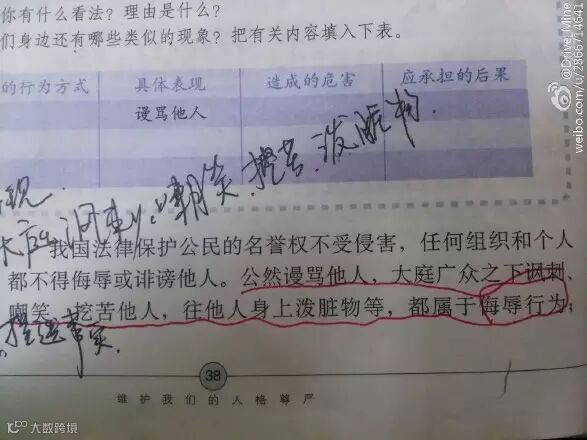 你有什么看法？理由是什么？
们身边还有哪些类似的现象？把有关内容填入下表。
的行为方式 具体表现 造成的危害 应承担的后果
谩骂他人
嘲笑.挖苦.泼脏物.
我国法律保护公民的名誉权不受侵害，任何组织和个人
都不得侮辱或诽谤他人。公然谩骂他人，大庭广众之下讽刺、
嘲笑、挖苦他人，往他人身上泼脏物等，都属于侮辱行为；
捏造事实.
38
维护我们的人格尊严
@Drive_Mine
weibo.com/u/2866714641
大数跨境